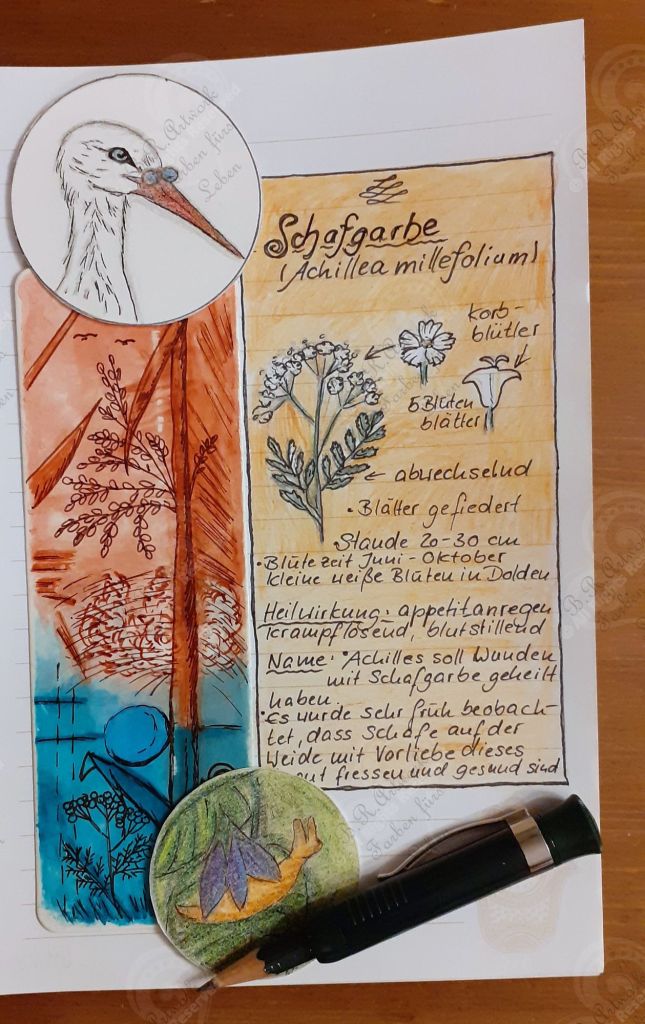 Schafgarbe
(Achillea millefolium)
Korb-
blütler
5 Blüten
blätter
abwechselnd
• Blätter gefiedert
• Staude 20-30 cm
• Blütezeit Juni - Oktober
kleine weiße Blüten in Dolden
Heilwirkung: appetitanregen
krampflösend, blutstillend
Name: • Achilles soll Wunden
mit Schafgarbe geheilt
haben.
• Es wurde sehr früh beobach-
tet, dass Schafe auf der
Weide mit Vorliebe dieses
fressen und gesund sind
B.R. Artwork
Farben fürs
Leben